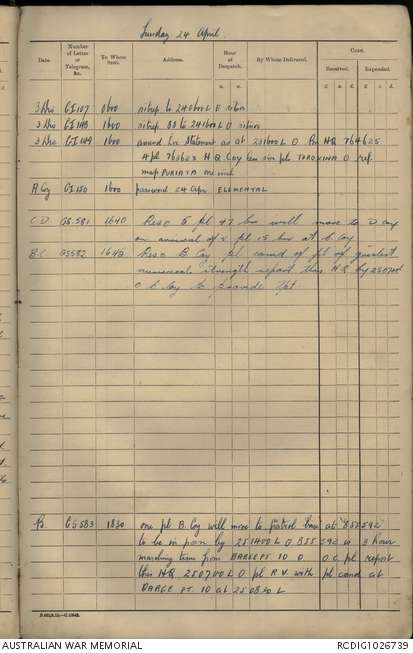 Sunday 24 April.
Date.
Number of Letter or Telegram, &c.
To Whom Sent.
Address.
Hour of Despatch.
By Whom Delivered.
Cost.
Received.
Expended.
3 Div GI 107 0600 sitrep to 240600 L O sitns
3 Div GI 148 1600 sitrep to 241600 L O sitns
3 Div GI 149 1600 amend loc Statement as at 231600 L O Bn HQ 764625
A pl 763623 H.Q. Coy two six pls TOROKINA O ref
map PURIATA one inch
A Coy GI 150 1600 password 24 Apr ELEMENTAL
C.D. GS 581 1640 Reso 5 pl 47 bn will move to D coy
on arrival of pl 15 bn at b Coy
B.C. GS 582 1640 Reso B Coy pl comd of pl of greatest
numerical strength report this HQ by 250700
O b Coy to provide tpt
B. GS 583 1830 one pl B. Coy will move to patrol base at 855592
to be in posn by 251400 L O 855592 is 3 hour
marching time from BARGE PT 10 O O C pl report
this HQ 250700 L O pl R.V. with pl comd at
BARGE PT 10 at 250830 L
AUSTRALIAN WAR MEMORIAL
RCDIG1026739